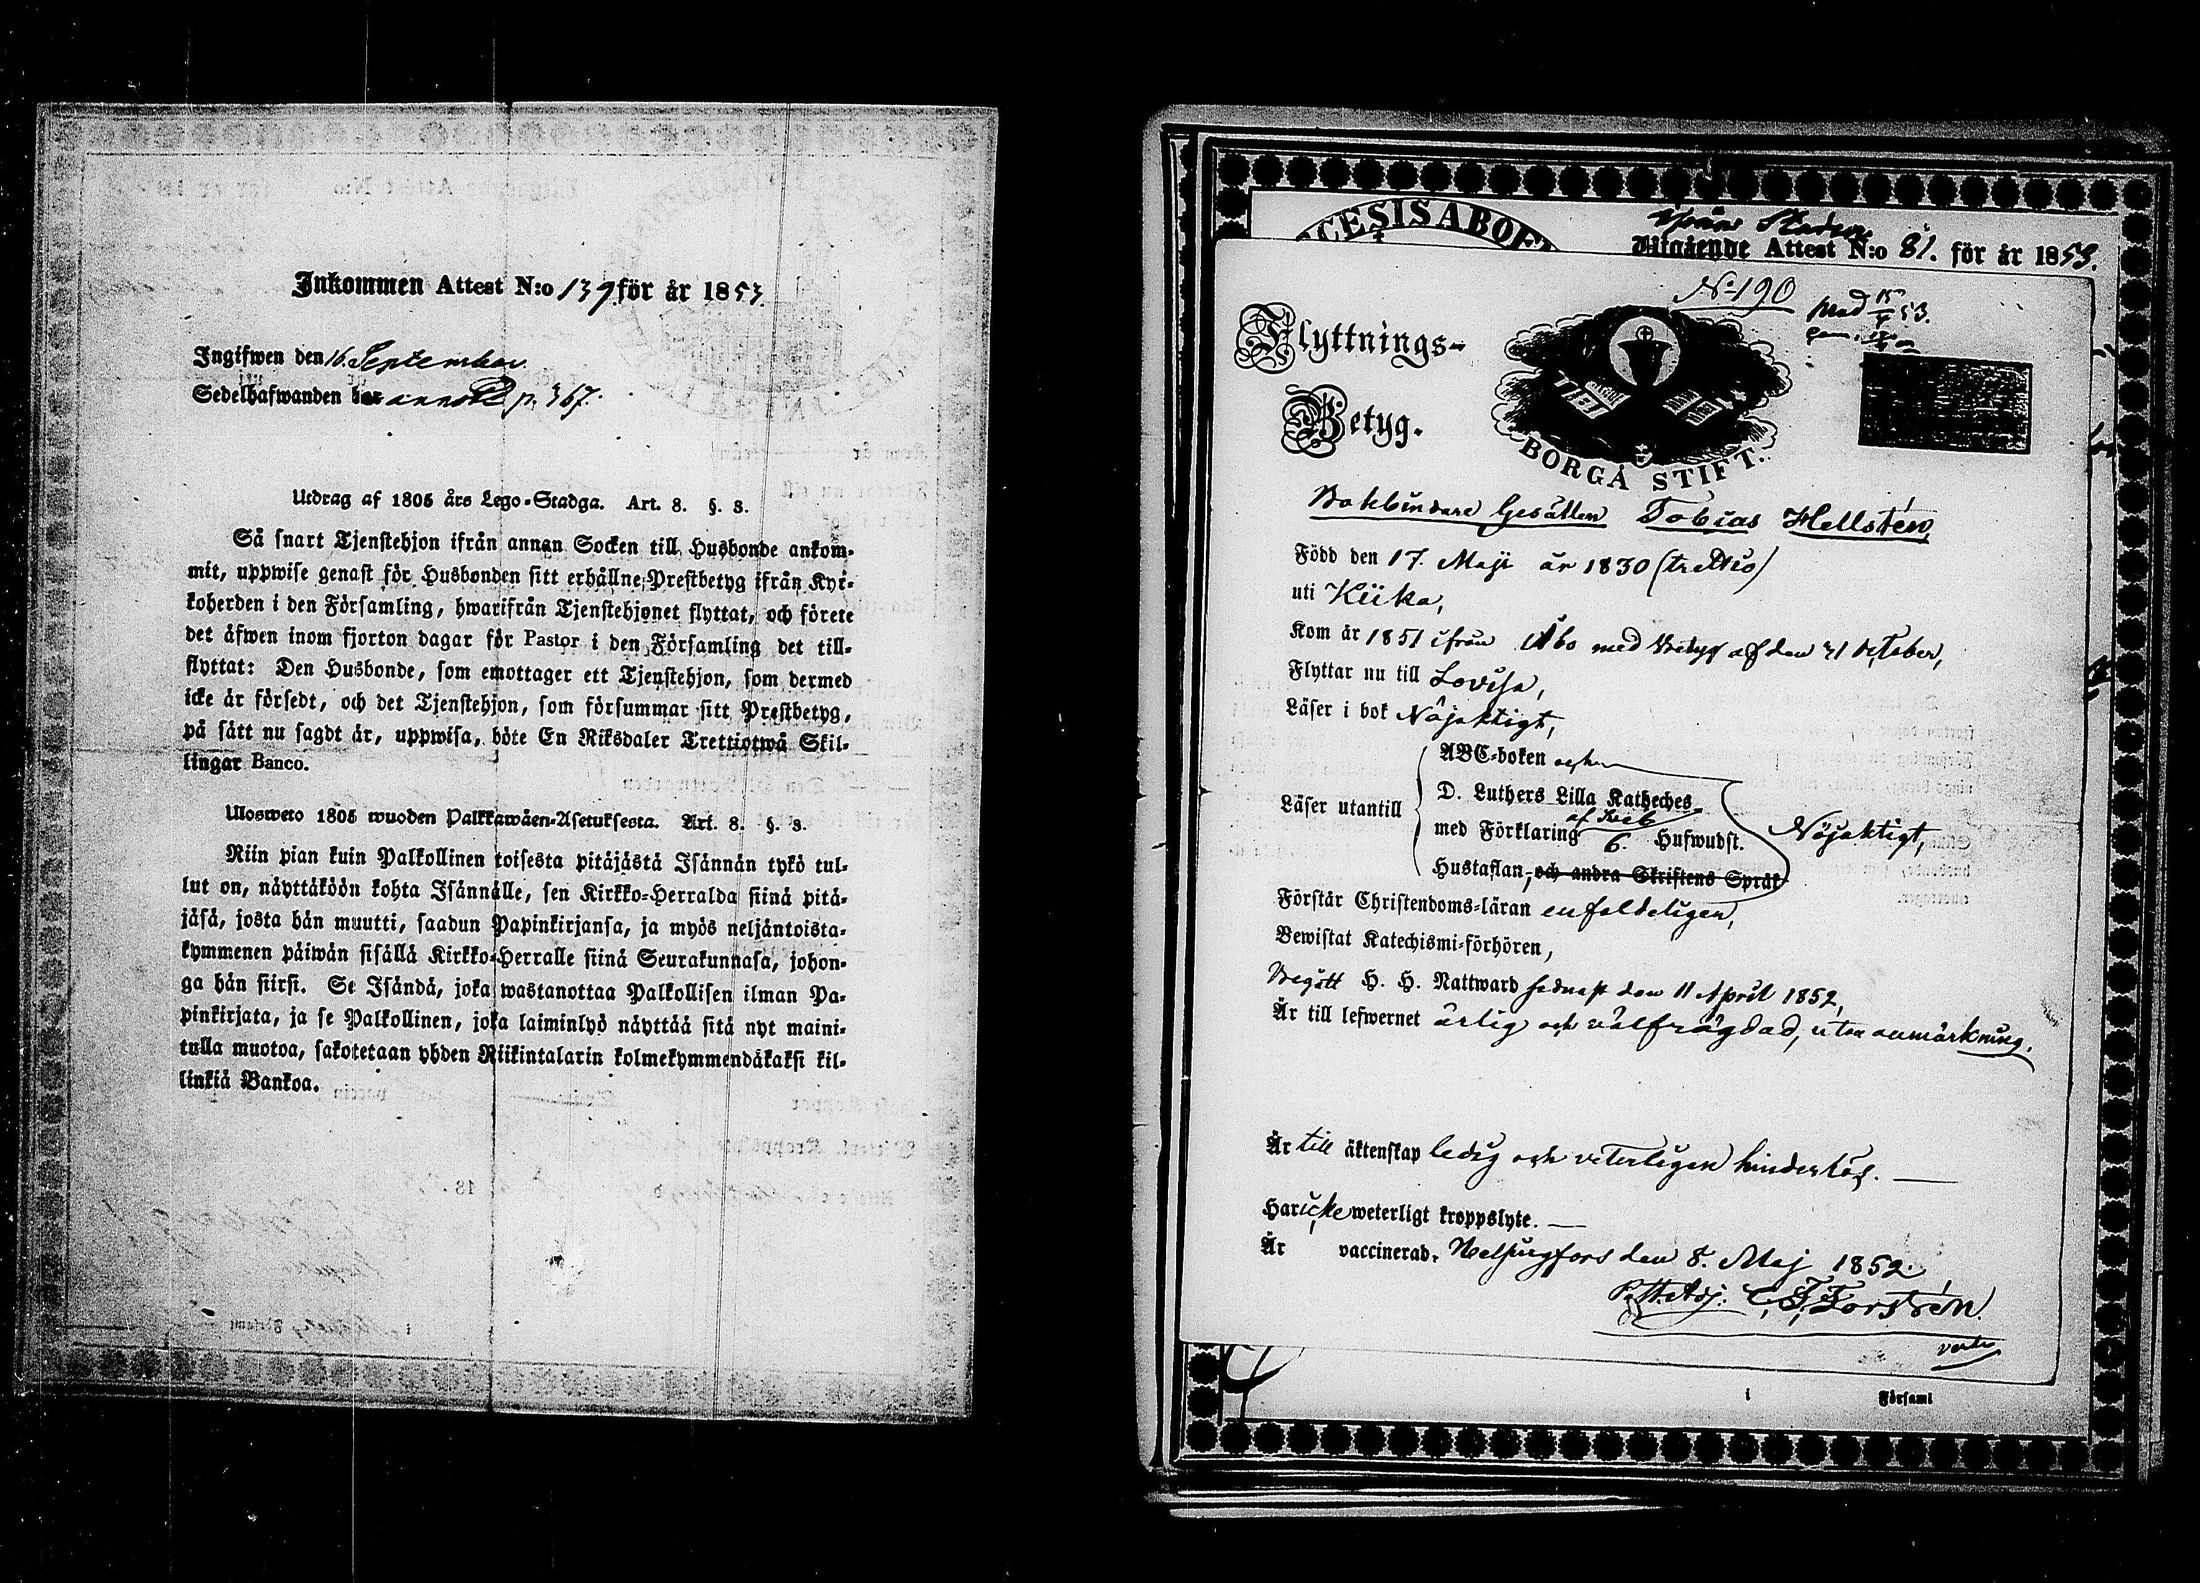 Inkommen Attest N:o 139 för år 1853.
Ingifwen den 16. September
Sedelhafwanden p. 367.
Utdrag af 1805 års Lego-Stadga. Art. 8. §. 3.
Så snart Tjenstehjon ifrån annan Socken till Husbonde ankom-
mit, uppwise genast för Husbonden sitt erhållne Prestbetyg ifrån Kyr-
koherden i den Församling, hwarifrån Tjenstehjonet flyttat, och förete
det äfwen inom fjorton dagar för Pastor i den Församling det till-
flyttat: Den Husbonde, som emottager ett Tjenstehjon, som dermed
icke är försedt, och det Tjenstehjon, som försummar sitt Prestbetyg,
på sätt nu sagdt är, uppwisa, böte En Riksdaler Trettiotwå Skil-
lingar Banco.
Ulosweto 1805 wuoden Palkkawäen-Asetuksesta. Art. 8. §. 3.
Niin pian kuin Palkollinen toisesta pitäjästä Isännän tykö tul-
lut on, näyttäköön kohta Isännälle, sen Kirkko-Herralda siinä pitä-
jäsä, josta hän muutti, saadun Papinkirjansa, ja myös neljäntoista-
kymmenen päiwän sisällä Kirkko-Herralle siinä Seurakunnasa, johon-
ga hän siirsi. Se Isändä, joka wastanottaa Palkollisen ilman Pa-
pinkirjata, ja se Palkollinen, joka laiminlyö näyttää sitä nyt maini-
tulla muotoa, sakotetaan yhden Riikintalarin kolmekymmendäkaksi kil-
linkiä Bankoa.
CESIS ABOE
Utgående Attest N:o 81. för år 1853.
No 190
Flyttnings-
Betyg.
BORGÅ STIFT.
Bokbindare Gesällen Tobias Hellstén,
Född den 17. Maji år 1830 (trettio)
uti Kiika,
Kom år 1851 ifrån Åbo med Betyg af den 21 October,
Flyttar nu till Lovisa,
Läser i bok Nöjaktigt,
ABC-boken och
Läser utantill D. Luthers Lilla Kateches
med Förklaring af Sveb. 6. Hufwudst. Nöjaktigt,
Hustaflan, och andra Skriftens Språk
Förstår Christendoms-läran enfaldeligen,
Bewistat Katechismi-förhören,
Begått H. H. Nattward sednast den 11 April 1852,
Är till lefwernet ärlig och välfrägdad, utan anmärkning.
Är till äktenskap ledig och veterligen hinderlös.
Har icke weterligt kroppslyte.
Är vaccinerad. Helsingfors den 8. Maj 1852.
C. F. Forstén.
verte
i Församl